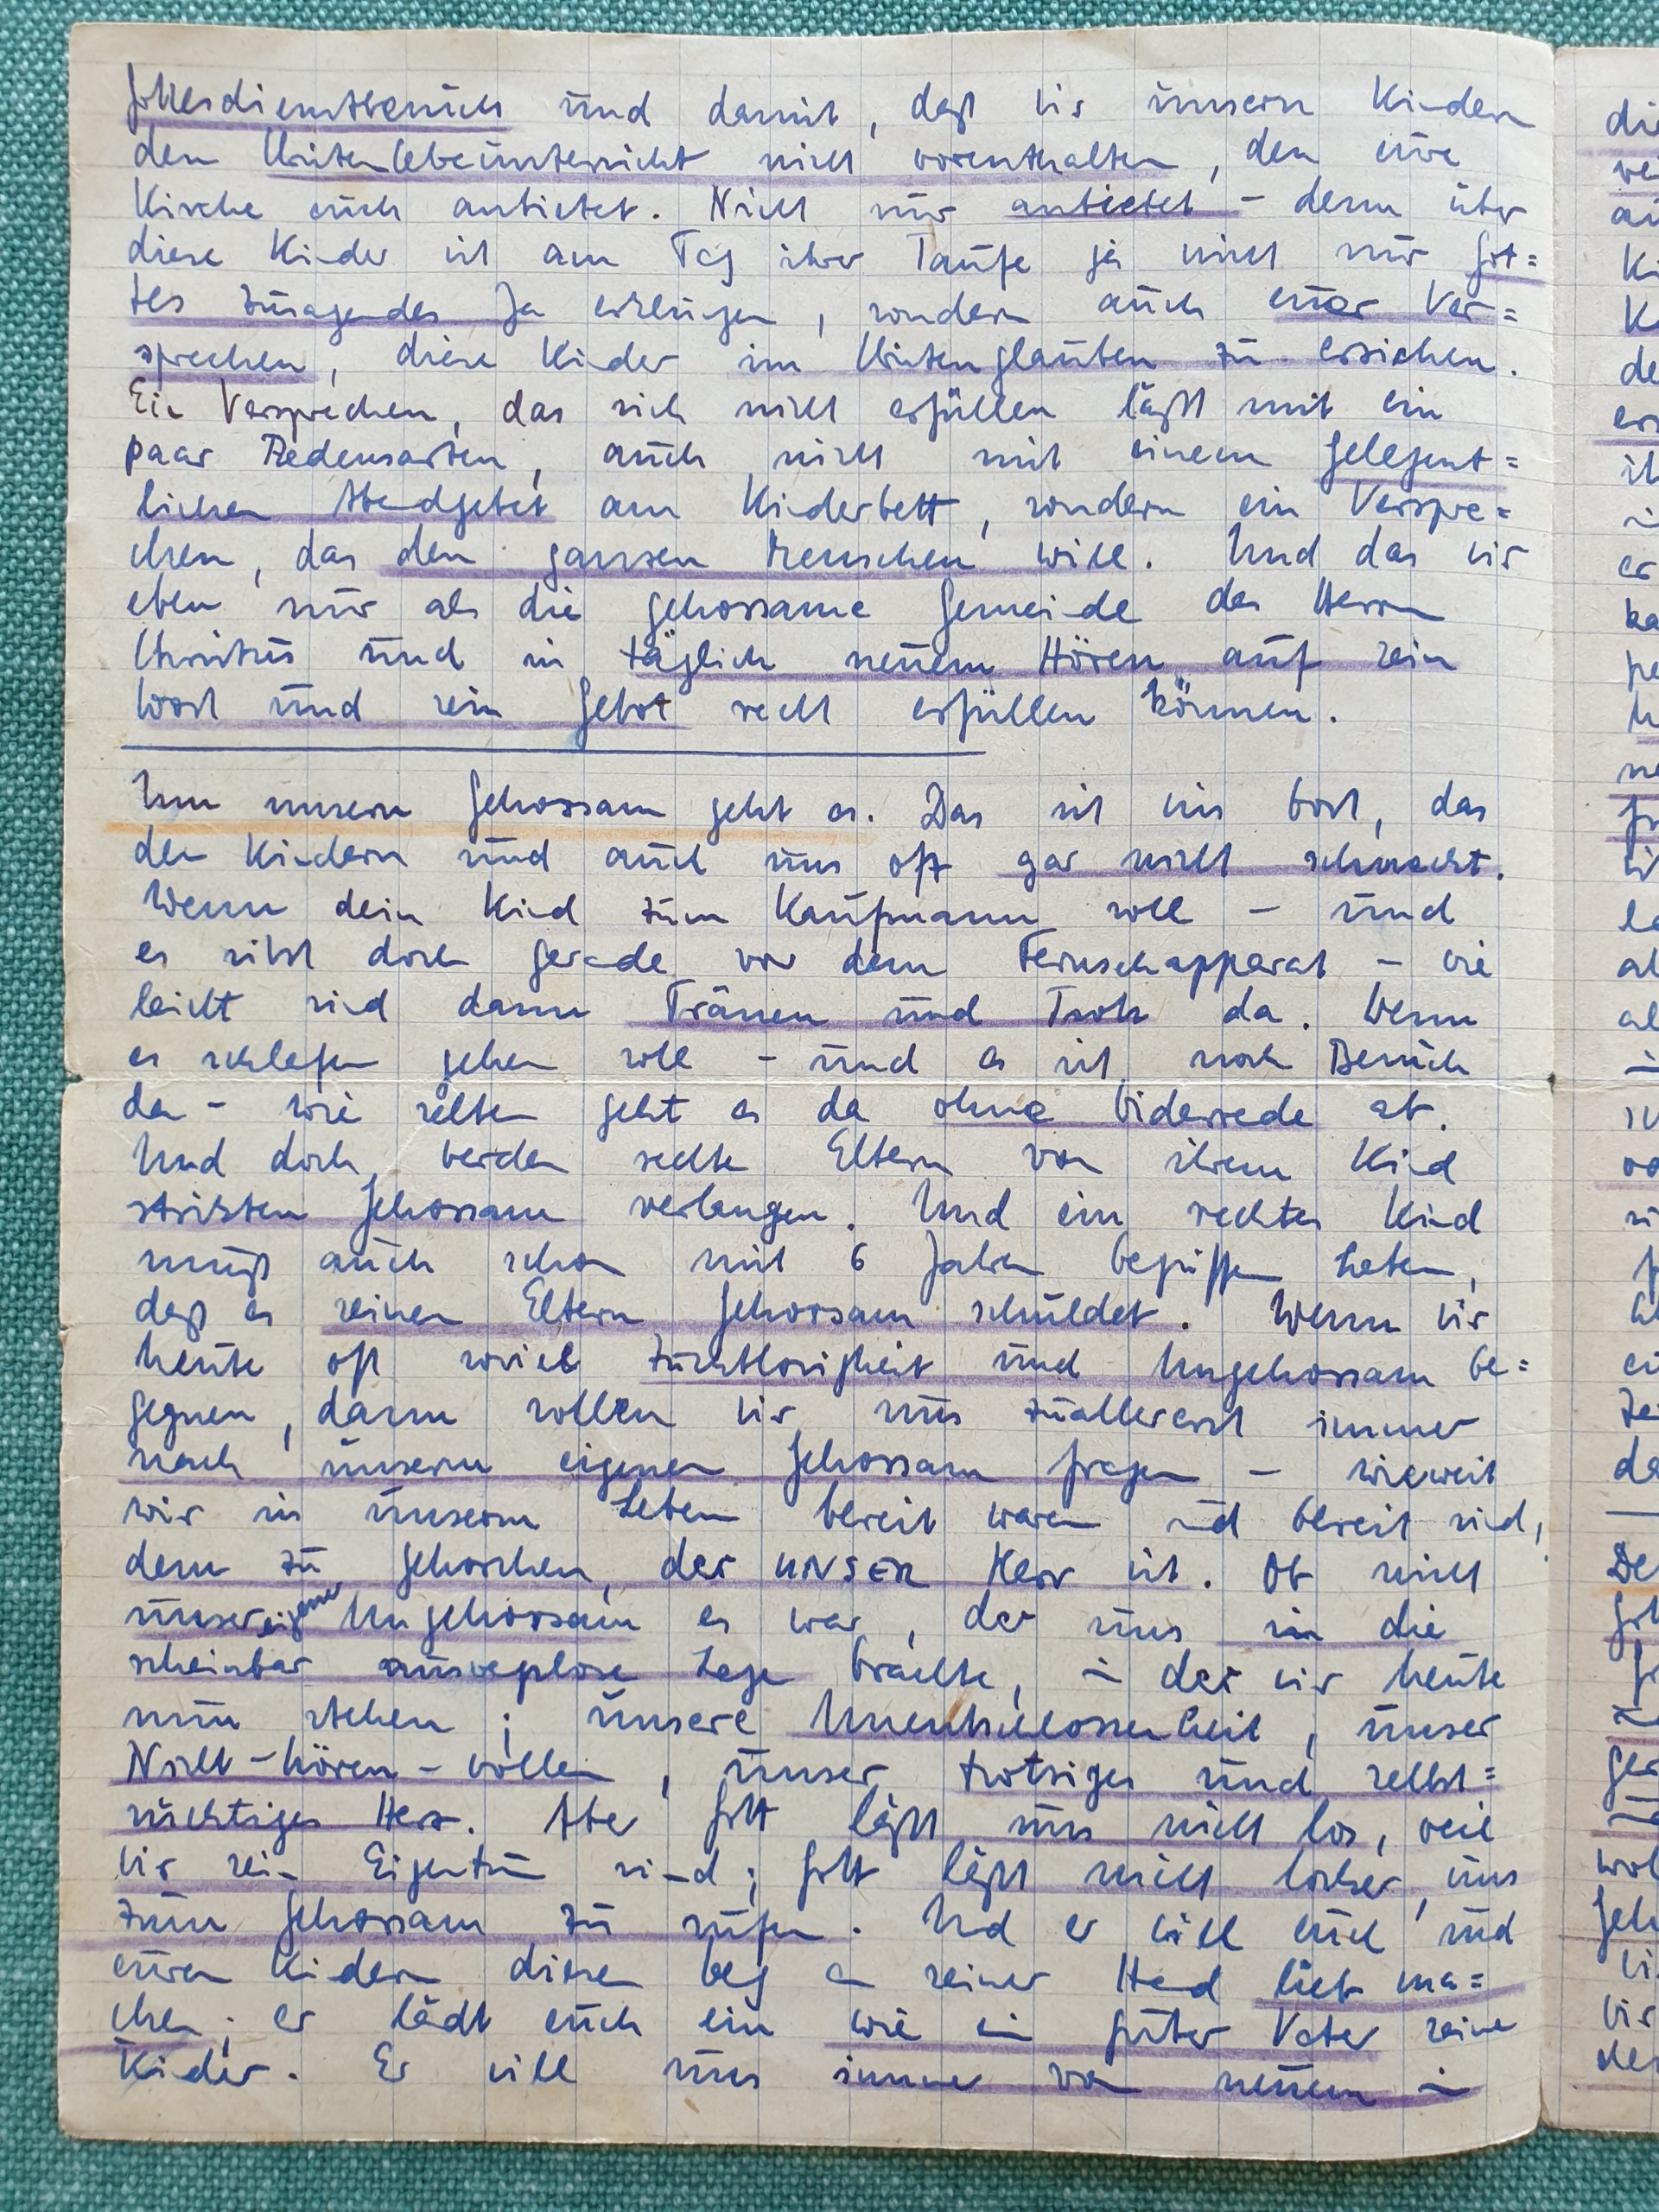 Gottesdienstbesuch und damit, daß wir unsern Kindern
den Christenlehreunterricht nicht vorenthalten, den eure
Kirche euch anbietet. Nicht nur anbietet – denn über
diese Kinder ist am Tag ihrer Taufe ja nicht nur Got=
tes zusagendes Ja erklungen, sondern auch euer Ver=
sprechen, diese Kinder im Christenglauben zu erziehen.
Ein Versprechen, das sich nicht erfüllen läßt mit ein
paar Redensarten, auch nicht mit einem gelegent=
lichen Abendgebet am Kinderbett, sondern ein Verspre=
chen, das den ganzen Menschen will. Und das wir
eben nur als die gehorsame Gemeinde des Herrn
Christus und in täglich neuem Hören auf sein
Wort und sein Gebot recht erfüllen können.
Um unsern Gehorsam geht es. Das ist ein Wort, das
den Kindern und auch uns oft gar nicht schmeckt.
Wenn dein Kind zum Kaufmann soll – und
es sitzt doch gerade vor dem Fernsehapparat – wie
leicht sind dann Tränen und Trotz da. Wenn
es schlafen gehen soll – und es ist noch Besuch
da – wie selten geht es da ohne Widerrede ab.
Und doch werden rechte Eltern von ihrem Kind
strikten Gehorsam verlangen. Und ein rechtes Kind
muß auch schon mit 6 Jahren begriffen haben,
daß es seinen Eltern Gehorsam schuldet. Wenn wir
heute oft soviel Zuchtlosigkeit und Ungehorsam be=
gegnen, dann sollten wir uns zuallererst immer
nach unserm eigenen Gehorsam fragen – wieweit
wir in unserm Leben bereit waren und bereit sind,
dem zu gehorchen, der UNSER Herr ist. Ob nicht
unser eigener Ungehorsam es war, der uns in die
scheinbar ausweglose Lage brachte, in der wir heute
nun stehen; unsere Unentschlossenheit, unser
Nicht-hören-wollen, unser trotziges und selbst=
süchtiges Herz. Aber Gott läßt uns nicht los, weil
wir sein Eigentum sind; Gott läßt nicht locker, uns
zum Gehorsam zu rufen. Und er will euch und
euren Kindern diesen Weg an seiner Hand lieb ma=
chen; er lädt euch ein wie ein guter Vater seine
Kinder. Er will uns immer von neuem in